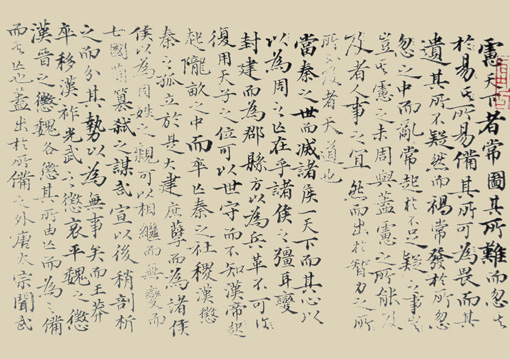 慮天下者常圖其所難而忽其
所易備其所可畏而
遺其所不疑然而禍常發於所忽
忽之中而亂常起於不足疑之事
豈其慮之未周與蓋慮之所能及
及者人事之宜然而出於智力之所
所不及者天道也
當秦之世而滅諸侯一天下而其心以
以為周之亡在乎諸侯之彊耳變
封建而為郡縣方以為兵革不可復
復用天子之位可以世守而不知漢帝起
起隴畝之中而卒亡秦之社稷漢懲
秦之孤立於是大建庶孽而為諸侯
侯以為同姓之親可以相繼而無變而
七國萌篡弒之謀武宣以後稍剖析
之而分其勢以為無事矣而王莽
卒移漢祚光武之懲哀平魏之懲
漢晉之懲魏各懲其所由亡而為之備
而其亡也蓋出於所備之外唐太宗聞武